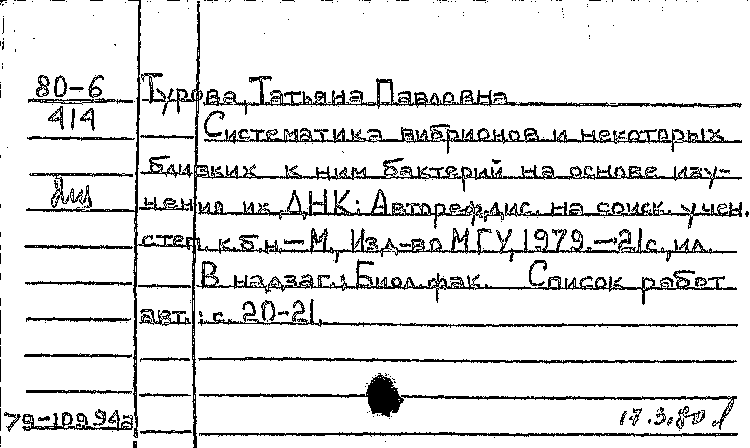 80-6
414
Турова, Татьяна Павловна
Систематика вибрионов и некоторых
близких к ним бактерий на основе изу-
чения их ДНК: Автореф. дис. на соиск. учен.
степ. к.б.н - М., Изд-во МГУ, 1979. - 21 с., ил.
В надзаг.: Биол. фак. Список работ
авт.: с. 20-21.
79-10994а
17.3.80